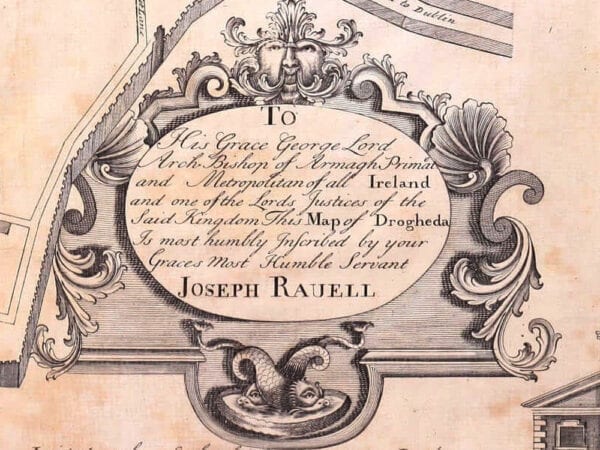 to Dublin
TO
His Grace George Lord
Arch Bishop of Armagh Primat
and Metropolitan of all Ireland
and one of the Lords Justices of the
Said Kingdom This Map of Drogheda
Is most humbly Inscribed by your
Graces Most Humble Servant
JOSEPH RAUELL